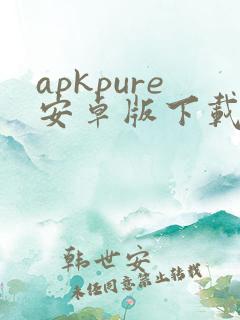 apkpure
安卓版下载
韩世安
未经同意禁止转载